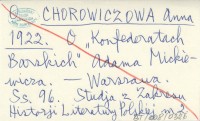 CHOROWICZOWA Anna
1922. O „Konfederatach
Barskich" Adama Mickie-
wicza. — Warszawa.
Ss. 96. Studja z Zakresu
Historji Literatury Polskiej nr 2